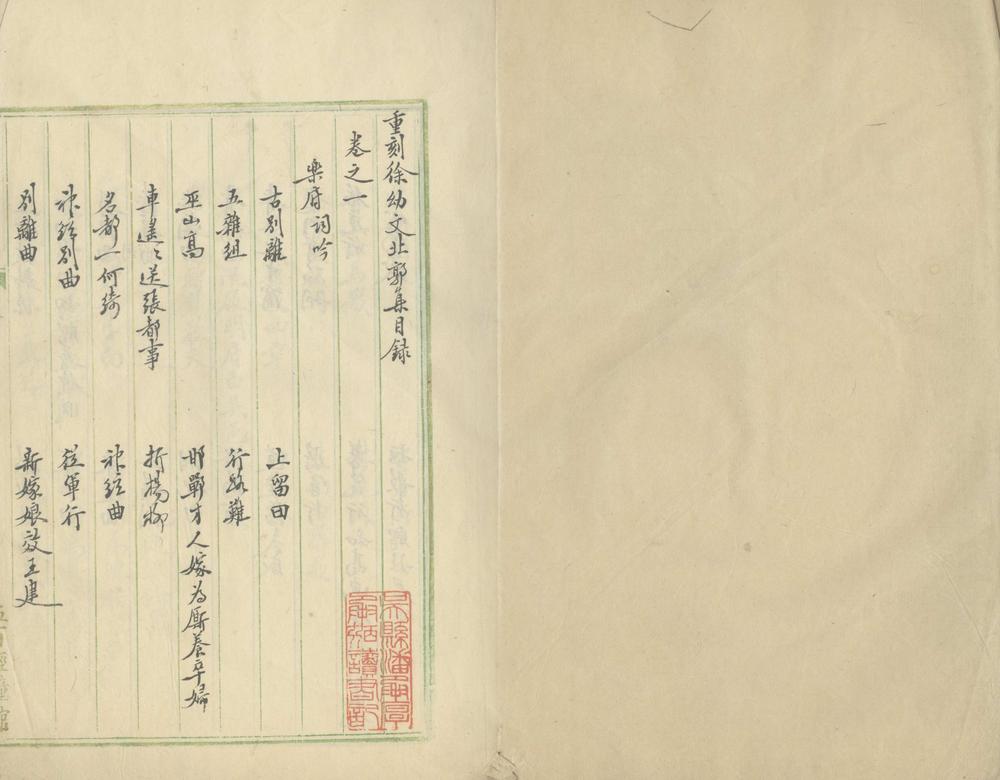 重刻徐幼文北郭集目録
卷之一
樂府詞吟
古別離 上留田
五雜組 行路難
巫山高 邯鄲才人嫁為厮養卒婦
車遥〻送張都事 折楊柳
名都一何綺 神絃曲
神絃別曲 從軍行
別離曲 新嫁娘效王建
五百經幢館
吳縣潘
讀書記